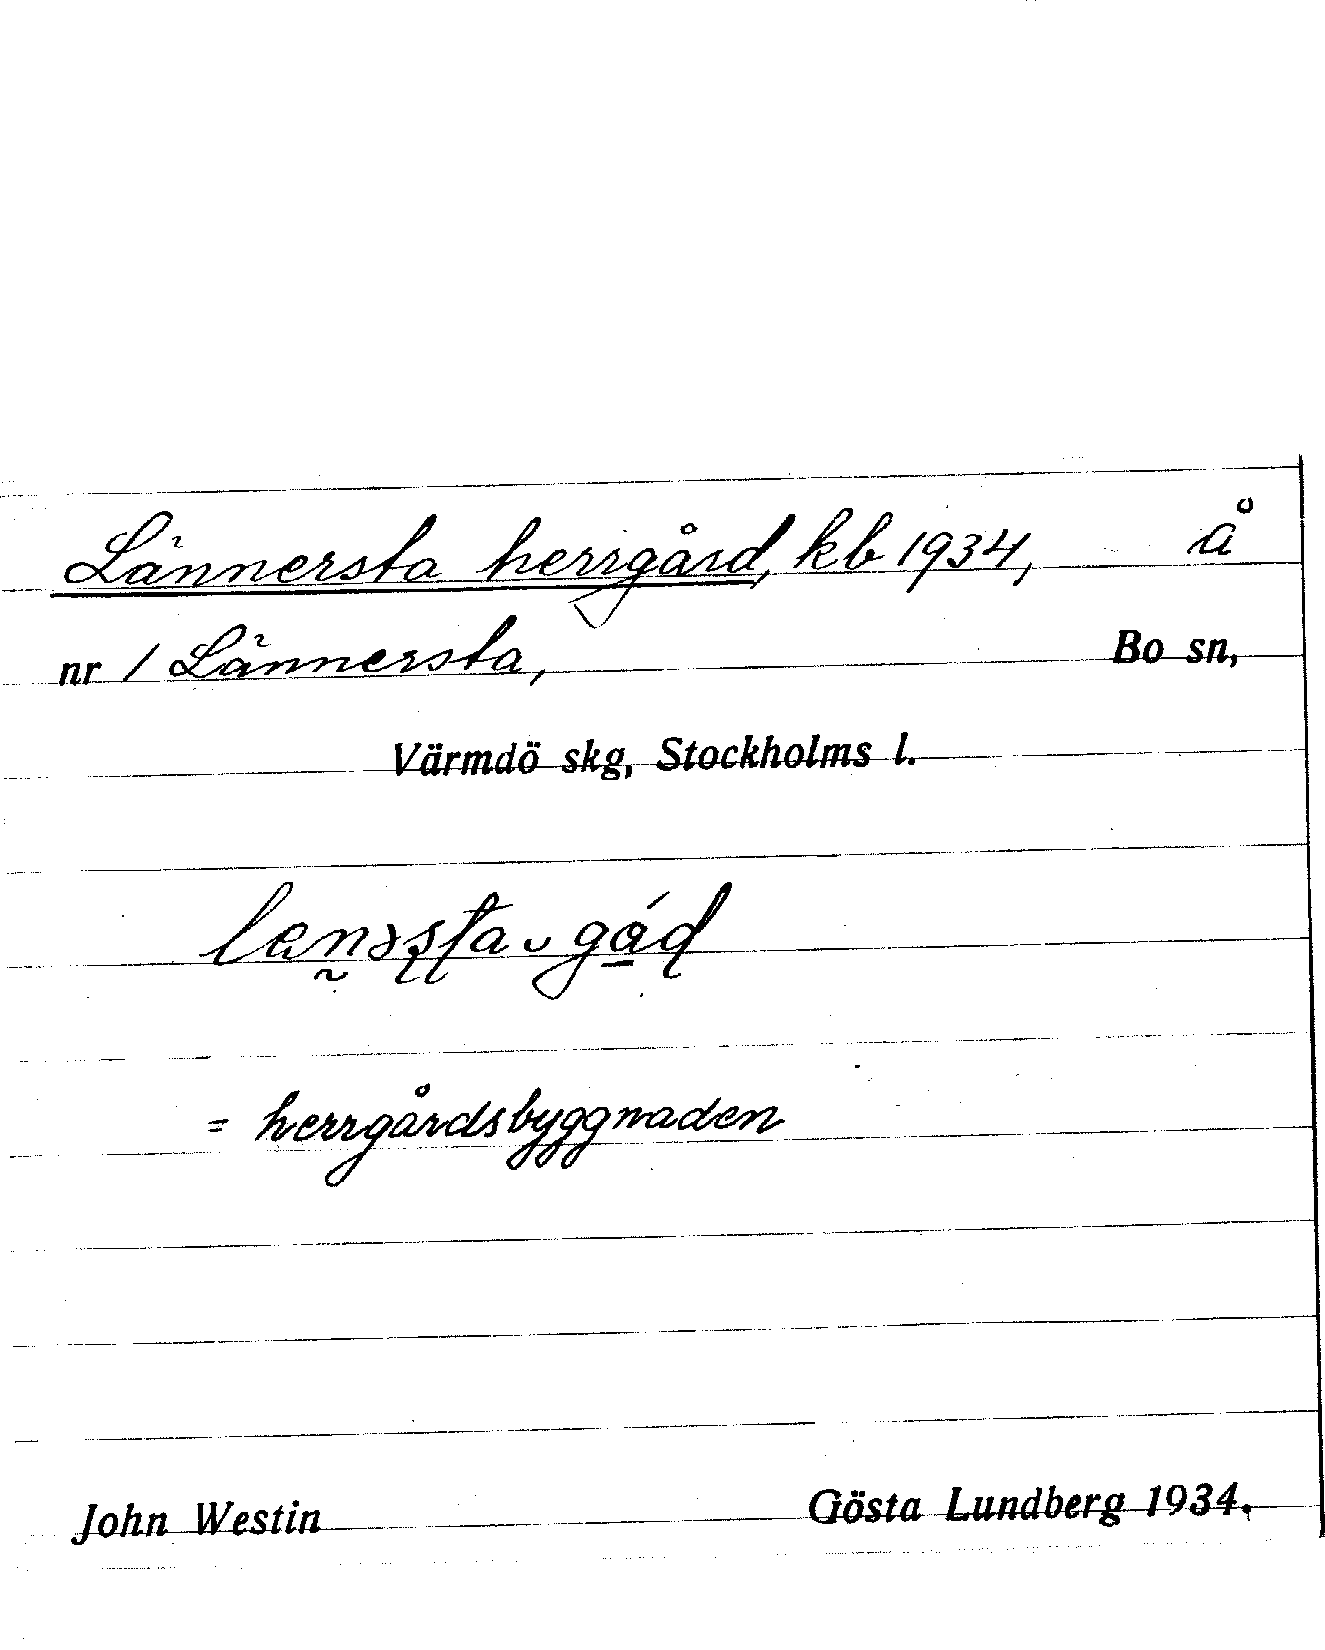 Lännersta herrgård, kb 1934, å
nr 1 Lännersta, Bo sn,
Värmdö skg, Stockholms l.
= herrgårdsbyggnaden
John Westin Gösta Lundberg 1934.